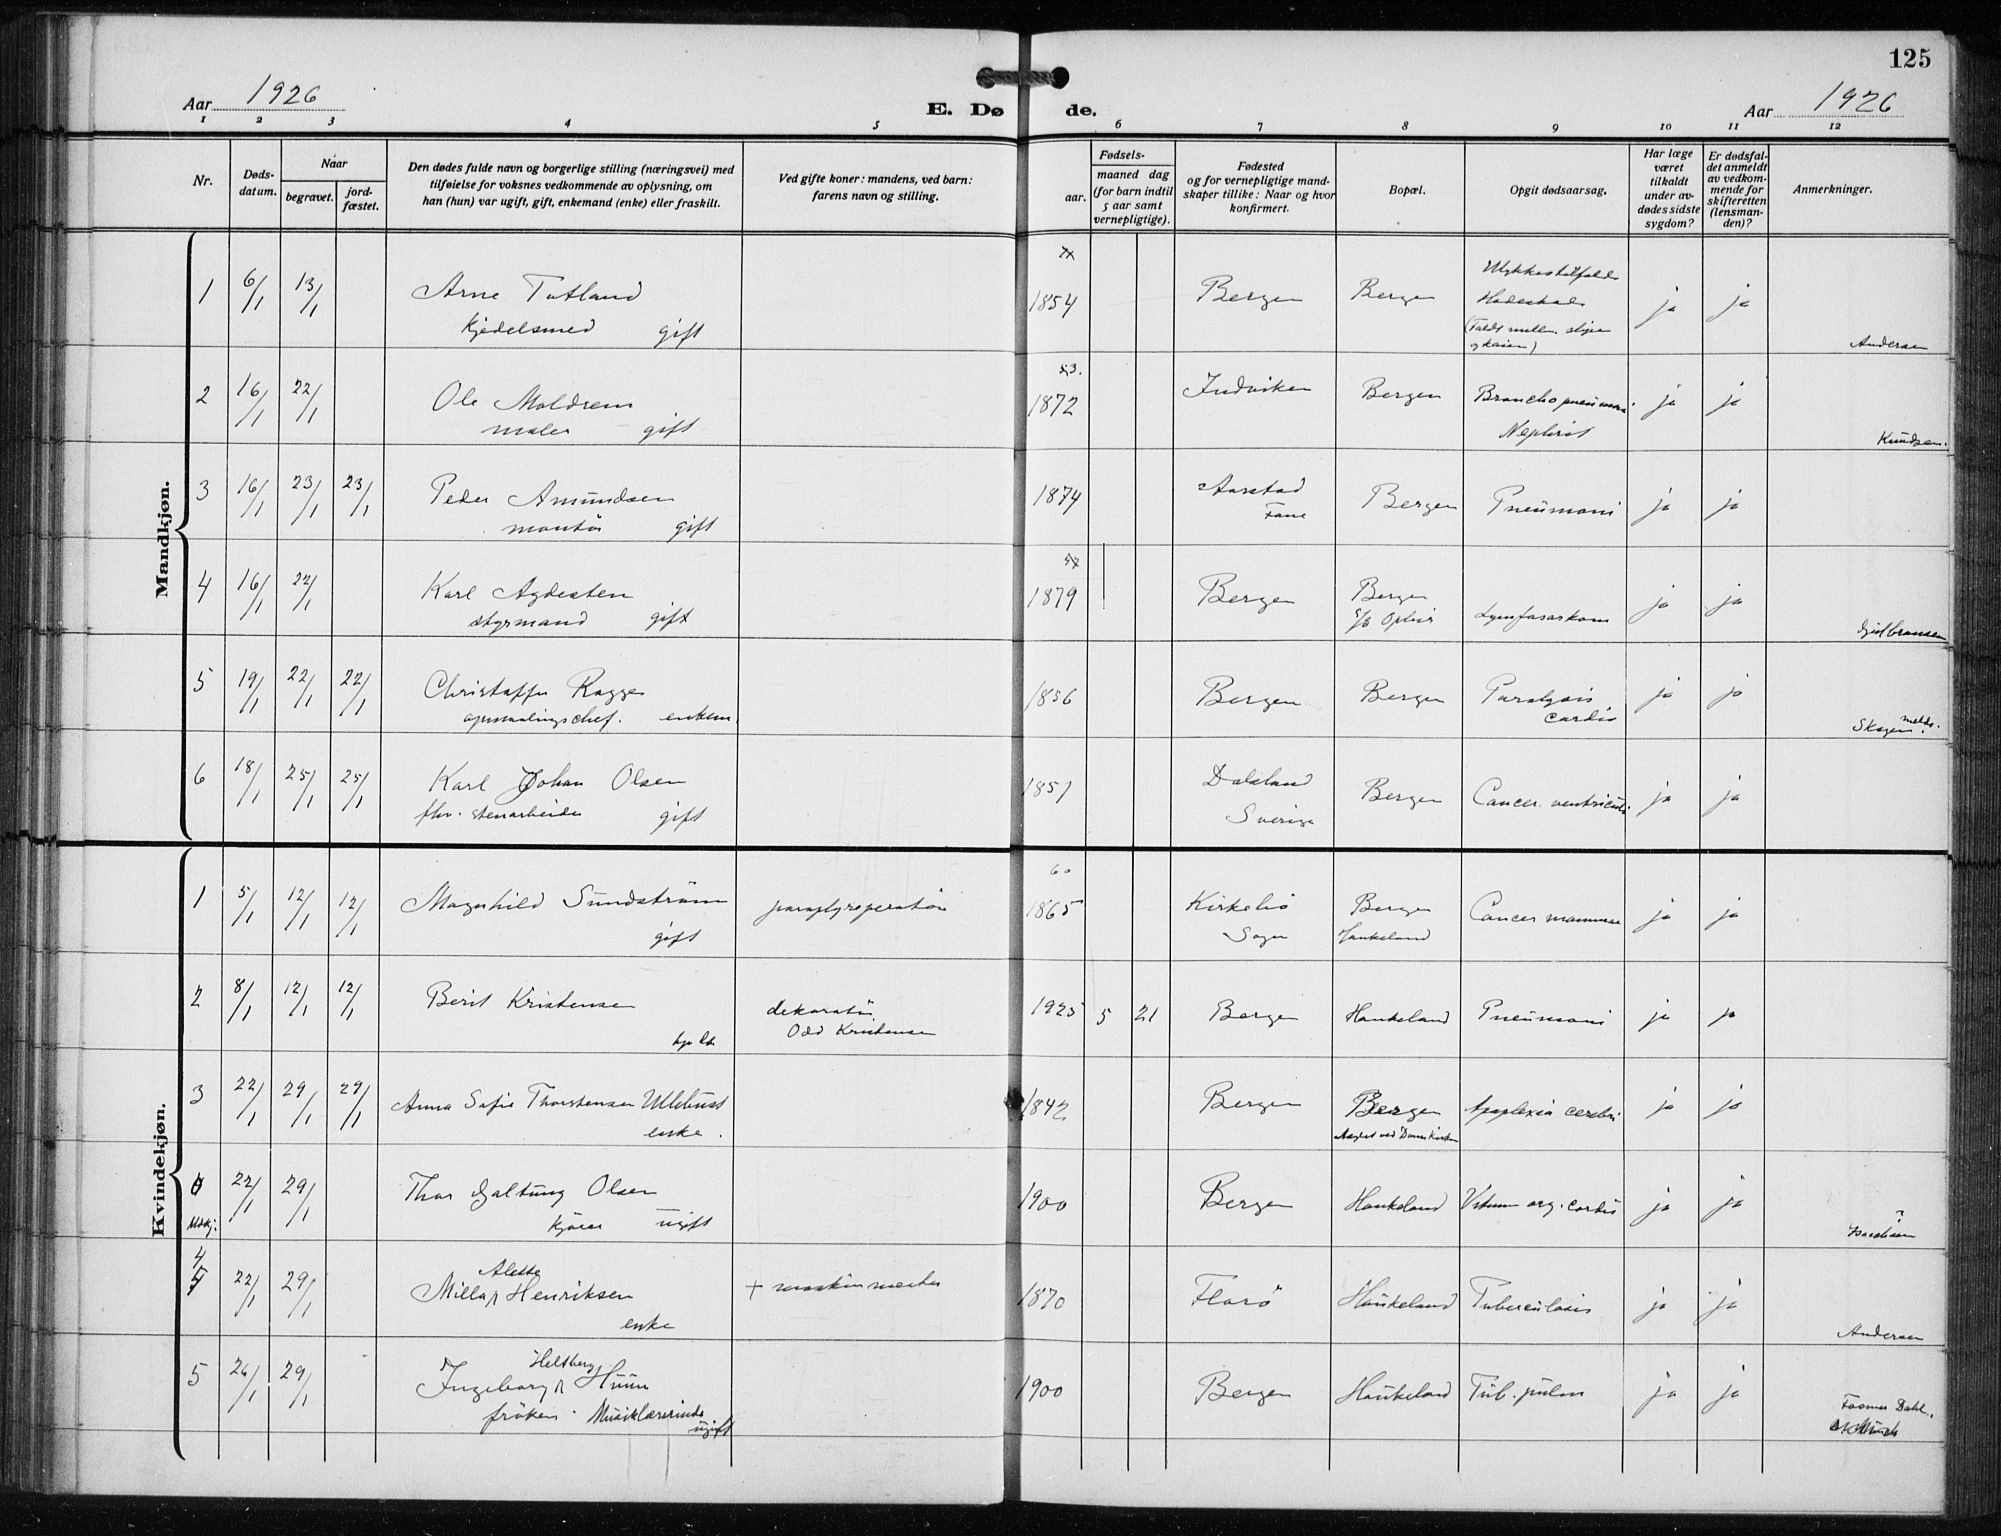 125
Aar 1926
E. Døde.
Aar 1926
1 2 3 4 5 6 7 8 9 10 11 12
Nr.
Døds-
datum.
Naar
begravet.
jord-
fæstet.
Den dødes fulde navn og borgerlige stilling (næringsvei) med
tilføielse for voksnes vedkommende av oplysning, om
han (hun) var ugift, gift, enkemand (enke) eller fraskilt.
Ved gifte koner: mandens, ved barn:
farens navn og stilling.
Fødsels-
aar.
maaned dag
(for barn indtil
5 aar samt
vernepligtige).
Fødested
og for vernepligtige mand-
skaper tillike: Naar og hvor
konfirmert.
Bopæl.
Opgit dødsaarsag.
Har læge
været
tilkaldt
under av-
dødes sidste
sygdom?
Er dødsfal-
det anmeldt
av vedkom-
mende for
skifteretten
(lensman-
den)?
Anmerkninger.
Mandkjøn.
1 6/1 13/1 Arne Totland 1854 Bergen Bergen Ulykkestilfælde ja ja
kjedelsmed gift
Andersen
2 16/1 22/1 Ole Moldrem 53. 1872 Indviken Bergen Bronchopneumoni ja ja
maler gift Nephrit
Knudsen.
3 16/1 23/1 23/1 Peder Amundsen 1874 Aarstad Bergen Pneumoni ja ja
montör gift Fane
4 16/1 22/1 Karl Agdesten 1879 Bergen Bergen Lymfosarkom ja ja
styrmand gift S/S Ophir
5 19/1 22/1 22/1 Christoffer Rogge 1856 Bergen Bergen Paralysis ja ja
opmaalingschef. enkem. cordis
Skagen
6 18/1 25/1 25/1 Karl Johan Olsen 1851 Dalsland Bergen Cancer ventriculi ja ja
fhv. stenarbeider gift Sverige
Kvindekjøn.
1 5/1 12/1 12/1 Magnhild Sundström paraplyreperatör 60 1865 Kirkebö Bergen Cancer mammae ja ja
gift Sogn Haukeland
2 8/1 12/1 12/1 Berit Kristensen dekoratör 1925 5 21 Bergen Haukeland Pneumoni ja ja
Odd Kristensen
3 22/1 29/1 29/1 Anna Sofie Thorstensen Ullebust 1842 Bergen Bergen Apoplexia cerebri ja ja
enke. ved Domkirken
Mdkj. 22/1 29/1 Thor Galtung Olsen 1900 Bergen Haukeland Vitium org. cordis ja ja
kjörer ugift
4 22/1 29/1 Milla Alette Henriksen + maskinmester 1870 Florö Haukeland Tuberculosis ja ja
enke
Andersen
5 26/1 29/1 Ingeborg Heltberg Huun 1900 Bergen Haukeland Tub. pulm ja ja
fröken. Musiklærerinde
ugift
Dahl.